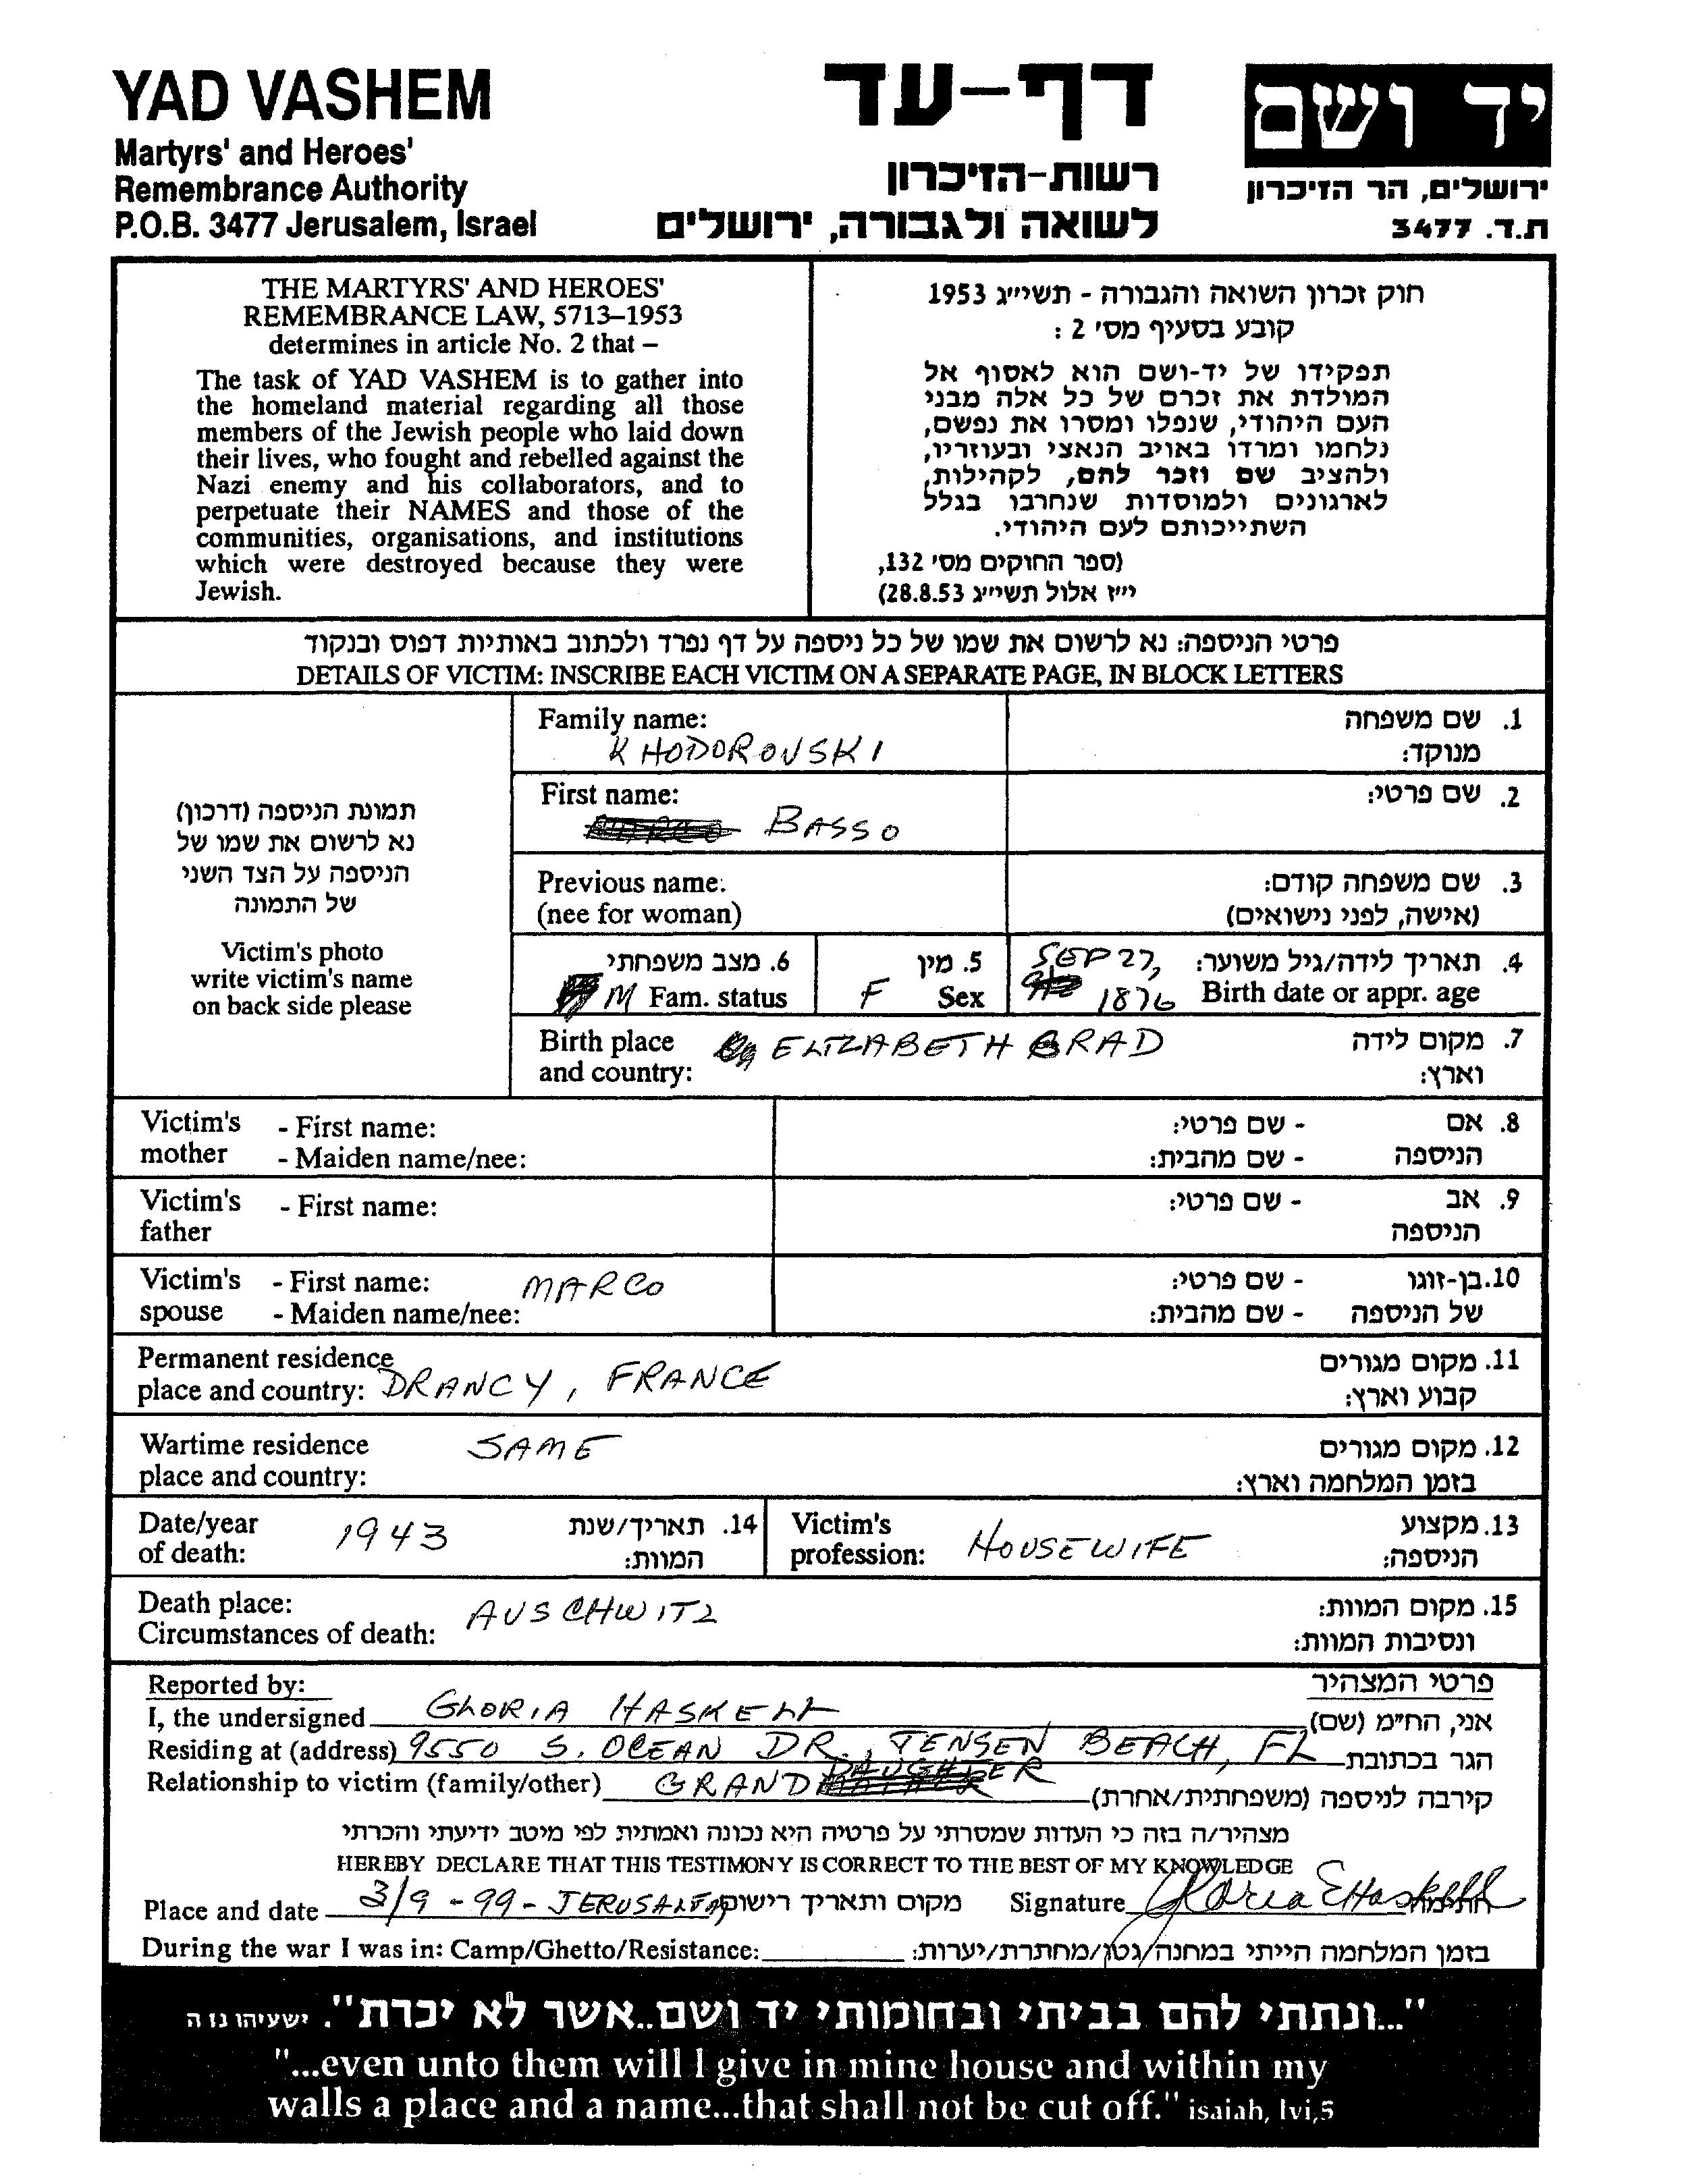 YAD VASHEM
Martyrs' and Heroes'
Remembrance Authority
P.O.B. 3477 Jerusalem, Israel
דף-עד
רשות-הזיכרון
לשואה ולגבורה, ירושלים
יד ושם
ירושלים, הר הזיכרון
ת.ד. 3477
THE MARTYRS' AND HEROES'
REMEMBRANCE LAW, 5713–1953
determines in article No. 2 that –
The task of YAD VASHEM is to gather into
the homeland material regarding all those
members of the Jewish people who laid down
their lives, who fought and rebelled against the
Nazi enemy and his collaborators, and to
perpetuate their NAMES and those of the
communities, organisations, and institutions
which were destroyed because they were
Jewish.
חוק זכרון השואה והגבורה - תשי״ג 1953
קובע בסעיף מס׳ 2 :
תפקידו של יד-ושם הוא לאסוף אל
המולדת את זכרם של כל אלה מבני
העם היהודי, שנפלו ומסרו את נפשם,
נלחמו ומרדו באויב הנאצי ובעוזריו,
ולהציב שם וזכר להם, לקהילות,
לארגונים ולמוסדות שנחרבו בגלל
השתייכותם לעם היהודי.
(ספר החוקים מס׳ 132,
י״ז אלול תשי״ג 28.8.53)
פרטי הניספה: נא לרשום את שמו של כל ניספה על דף נפרד ולכתוב באותיות דפוס ובנקוד
DETAILS OF VICTIM: INSCRIBE EACH VICTIM ON A SEPARATE PAGE, IN BLOCK LETTERS
תמונת הניספה (דרכון)
נא לרשום את שמו של
הניספה על הצד השני
של התמונה
Victim's photo
write victim's name
on back side please
Family name: 1. שם משפחה
KHODOROVSKI מנוקד:
First name: 2. שם פרטי:
BASSO
Previous name: 3. שם משפחה קודם:
(nee for woman) (אישה, לפני נישואים)
6. מצב משפחתי 5. מין SEP 27, 4. תאריך לידה/גיל משוער:
M Fam. status F Sex 1876 Birth date or appr. age
Birth place ELIZABETH GRAD 7. מקום לידה
and country: וארץ:
Victim's - First name: - שם פרטי: 8. אם
mother - Maiden name/nee: - שם מהבית: הניספה
Victim's - First name: - שם פרטי: 9. אב
father הניספה
Victim's - First name: MARCO - שם פרטי: 10. בן-זוגו
spouse - Maiden name/nee: - שם מהבית: של הניספה
Permanent residence 11. מקום מגורים
place and country: DRANCY, FRANCE קבוע וארץ:
Wartime residence SAME 12. מקום מגורים
place and country: בזמן המלחמה וארץ:
Date/year 1943 14. תאריך/שנת Victim's HOUSEWIFE 13. מקצוע
of death: המוות: profession: הניספה:
Death place: AUSCHWITZ 15. מקום המוות:
Circumstances of death: ונסיבות המוות:
Reported by: פרטי המצהיר
I, the undersigned GLORIA HASKELL אני, הח״מ (שם)
Residing at (address) 9550 S. OCEAN DR., JENSEN BEACH, FL הגר בכתובת
Relationship to victim (family/other) GRAND DAUGHTER קירבה לניספה (משפחתית/אחרת)
מצהיר/ה בזה כי העדות שמסרתי על פרטיה היא נכונה ואמתית לפי מיטב ידיעתי והכרתי
HEREBY DECLARE THAT THIS TESTIMONY IS CORRECT TO THE BEST OF MY KNOWLEDGE
Place and date 3/9 - 99 - JERUSALEM מקום ותאריך רישום Signature Gloria E Haskell חתימה
During the war I was in: Camp/Ghetto/Resistance: בזמן המלחמה הייתי במחנה/גטו/מחתרת/יערות:
"...ונתתי להם בביתי ובחומותי יד ושם..אשר לא יכרת". ישעיהו נו ה
"...even unto them will I give in mine house and within my
walls a place and a name...that shall not be cut off." isaiah, lvi,5